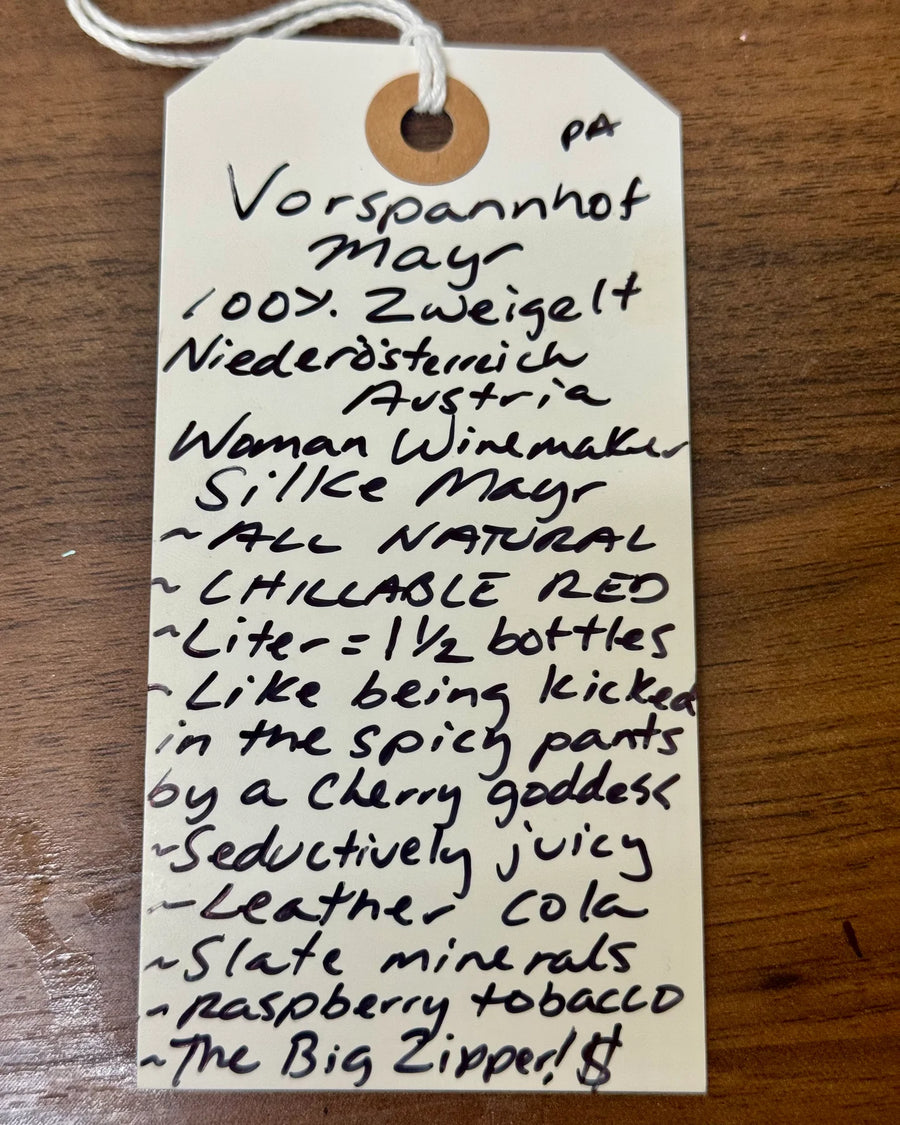 PA
Vorspannhof
Mayr
100% Zweigelt
Niederösterreich
Austria
Woman Winemaker
Silke Mayr
~ ALL NATURAL
~ CHILLABLE RED
~ Liter = 1 1/2 bottles
~ Like being kicked
in the spicy pants
by a Cherry goddess
~ Seductively juicy
~ Leather cola
~ Slate minerals
~ Raspberry tobacco
~ The Big Zipper! $